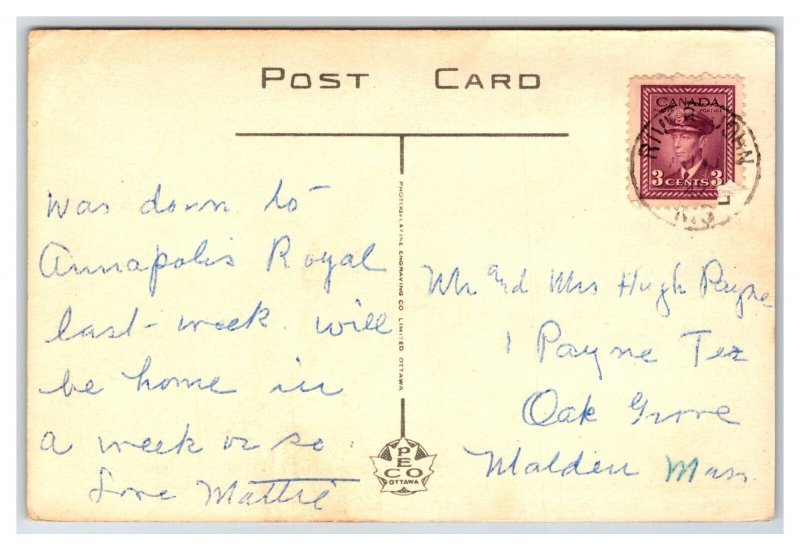 POST CARD
CANADA
POSTAGE
3 CENTS 3
RIVER JOHN
N.S.
was down to
Annapolis Royal
last week. will
be home in
a week or so.
Love Mattie
PHOTOGELATINE ENGRAVING CO. LIMITED. OTTAWA
PECO
OTTAWA
Mr and Mrs Hugh Payne
1 Payne Ter
Oak Grove
Malden Mass.